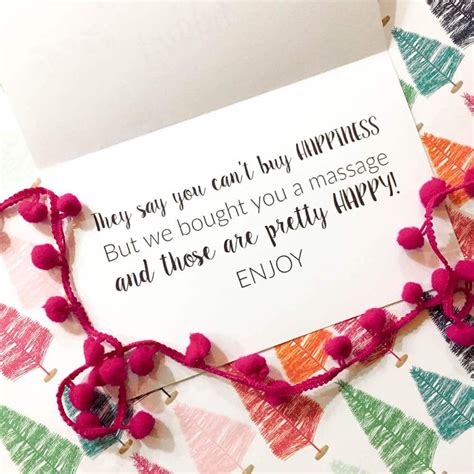 They say you can't buy HAPPINESS
But we bought you a massage
and those are pretty HAPPY!
ENJOY